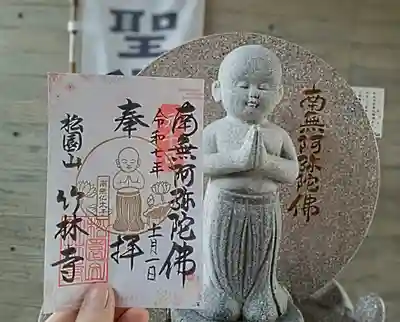 聖
南無阿弥陀佛
奉拝
令和七年
十一月一日
南無阿弥陀佛
南無仏太子
松園山
竹林寺